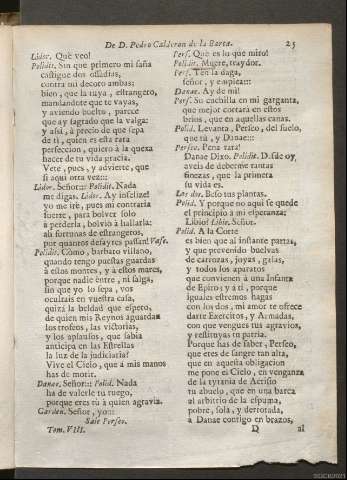 De D. Pedro Calderon de la Barca. 25
Lidor. Què veo!
Polidit. Sin que primero mi saña
castigue dos ossadias,
contra mi decoro ambas:
bien, que la tuya, estrangero,
mandandote que te vayas,
y aviendo buelto, parece
que ay sagrado que la valga:
y assi, à precio de que sepa
de ti, quien es esta rara
perfeccion, quiero à la quexa
hacer de tu vida gracia.
Vete, pues, y advierte, que
si aqui otra vez:::
Lidor. Señor::: Polidit. Nada
me digas. Lidor. Ay infelize!
yo me irè, pues mi contraria
fuerte, para bolver solo
à perderla, bolviò à hallarla:
ah fortunas de estrangeros,
por quantos desayres passan! Vase.
Polidit. Como, barbaro villano,
quando tengo puestas guardas
à estos montes, y à estos mares,
porque nadie entre, ni salga,
sin que yo lo sepa, vos
ocultais en vuestra casa,
quizà la beldad que espero,
de quien mis Reynos aguardan
los trofeos, las victorias,
y los aplausos, que sabia
anticipa en las Estrellas
la luz de la judiciaria?
Vive el Cielo, que à mis manos
has de morir.
Danae. Señor::: Polid. Nada
ha de valerle tu ruego,
porque eres tù à quien agravia.
Carden. Señor, yo:::
Sale Perseo.
Tom. VIII.
Pers. Què es lo que miro!
Polidit. Muere, traydor.
Pers. Tèn la daga,
señor, y empieza:::
Danae. Ay de mi!
Pers. Su cuchilla en mi garganta,
que mejor cortarà en estos
brios, que en aquellas canas.
Polid. Levanta, Perseo, del suelo,
que tù, y Danae:::
Perseo. Pena rara!
Danae Dixo. Polidit. Desde oy
aveis de deberme tantas
finezas, que la primera
su vida es.
Los dos. Beso tus plantas.
Polid. Y porque no aqui se quede
el principio à mi esperanza;
Libio? Libio. Señor.
Polid. A la Corte
es bien que al instante partas,
y que prevenido buelvas
de carrozas, joyas, galas,
y todos los aparatos
que convienen à una Infanta
de Epiro; y à ti, porque
iguales estremos hagas
con los dos, mi amor te ofrece
darte Exercitos, y Armadas,
con que vengues tus agravios,
y restituyas tu patria.
Porque has de saber, Perseo,
que eres de sangre tan alta,
que en aquesta obligacion
me pone el Cielo, en venganza
de la tyrania de Acrisio
tu abuelo, que en una barca
al arbitrio de la espuma,
pobre, sola, y derrotada,
à Danae contigo en brazos,
D al